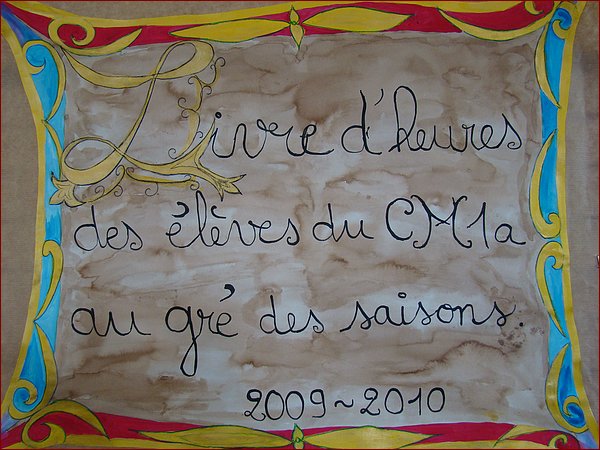 Livre d'heures
des élèves du CM1a
au gré des saisons.
2009~2010